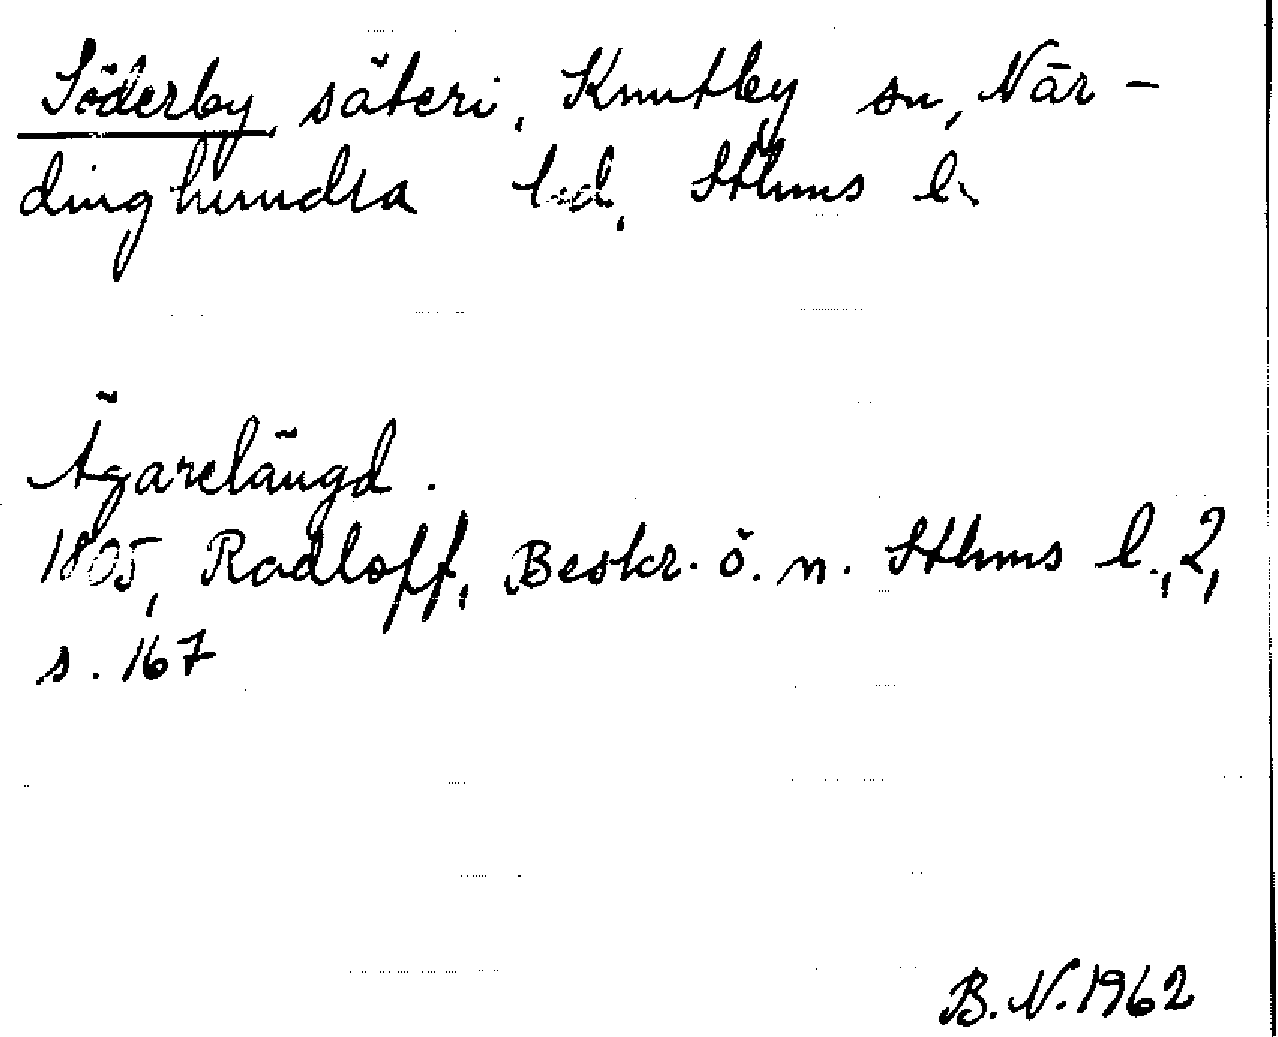 Söderby, säteri, Knutby sn, När-
dinghundra hd, Sthms l.
Ägarelängd.
1805, Radloff, Beskr. ö. n. Sthms l., 2,
s. 167
B. N. 1962